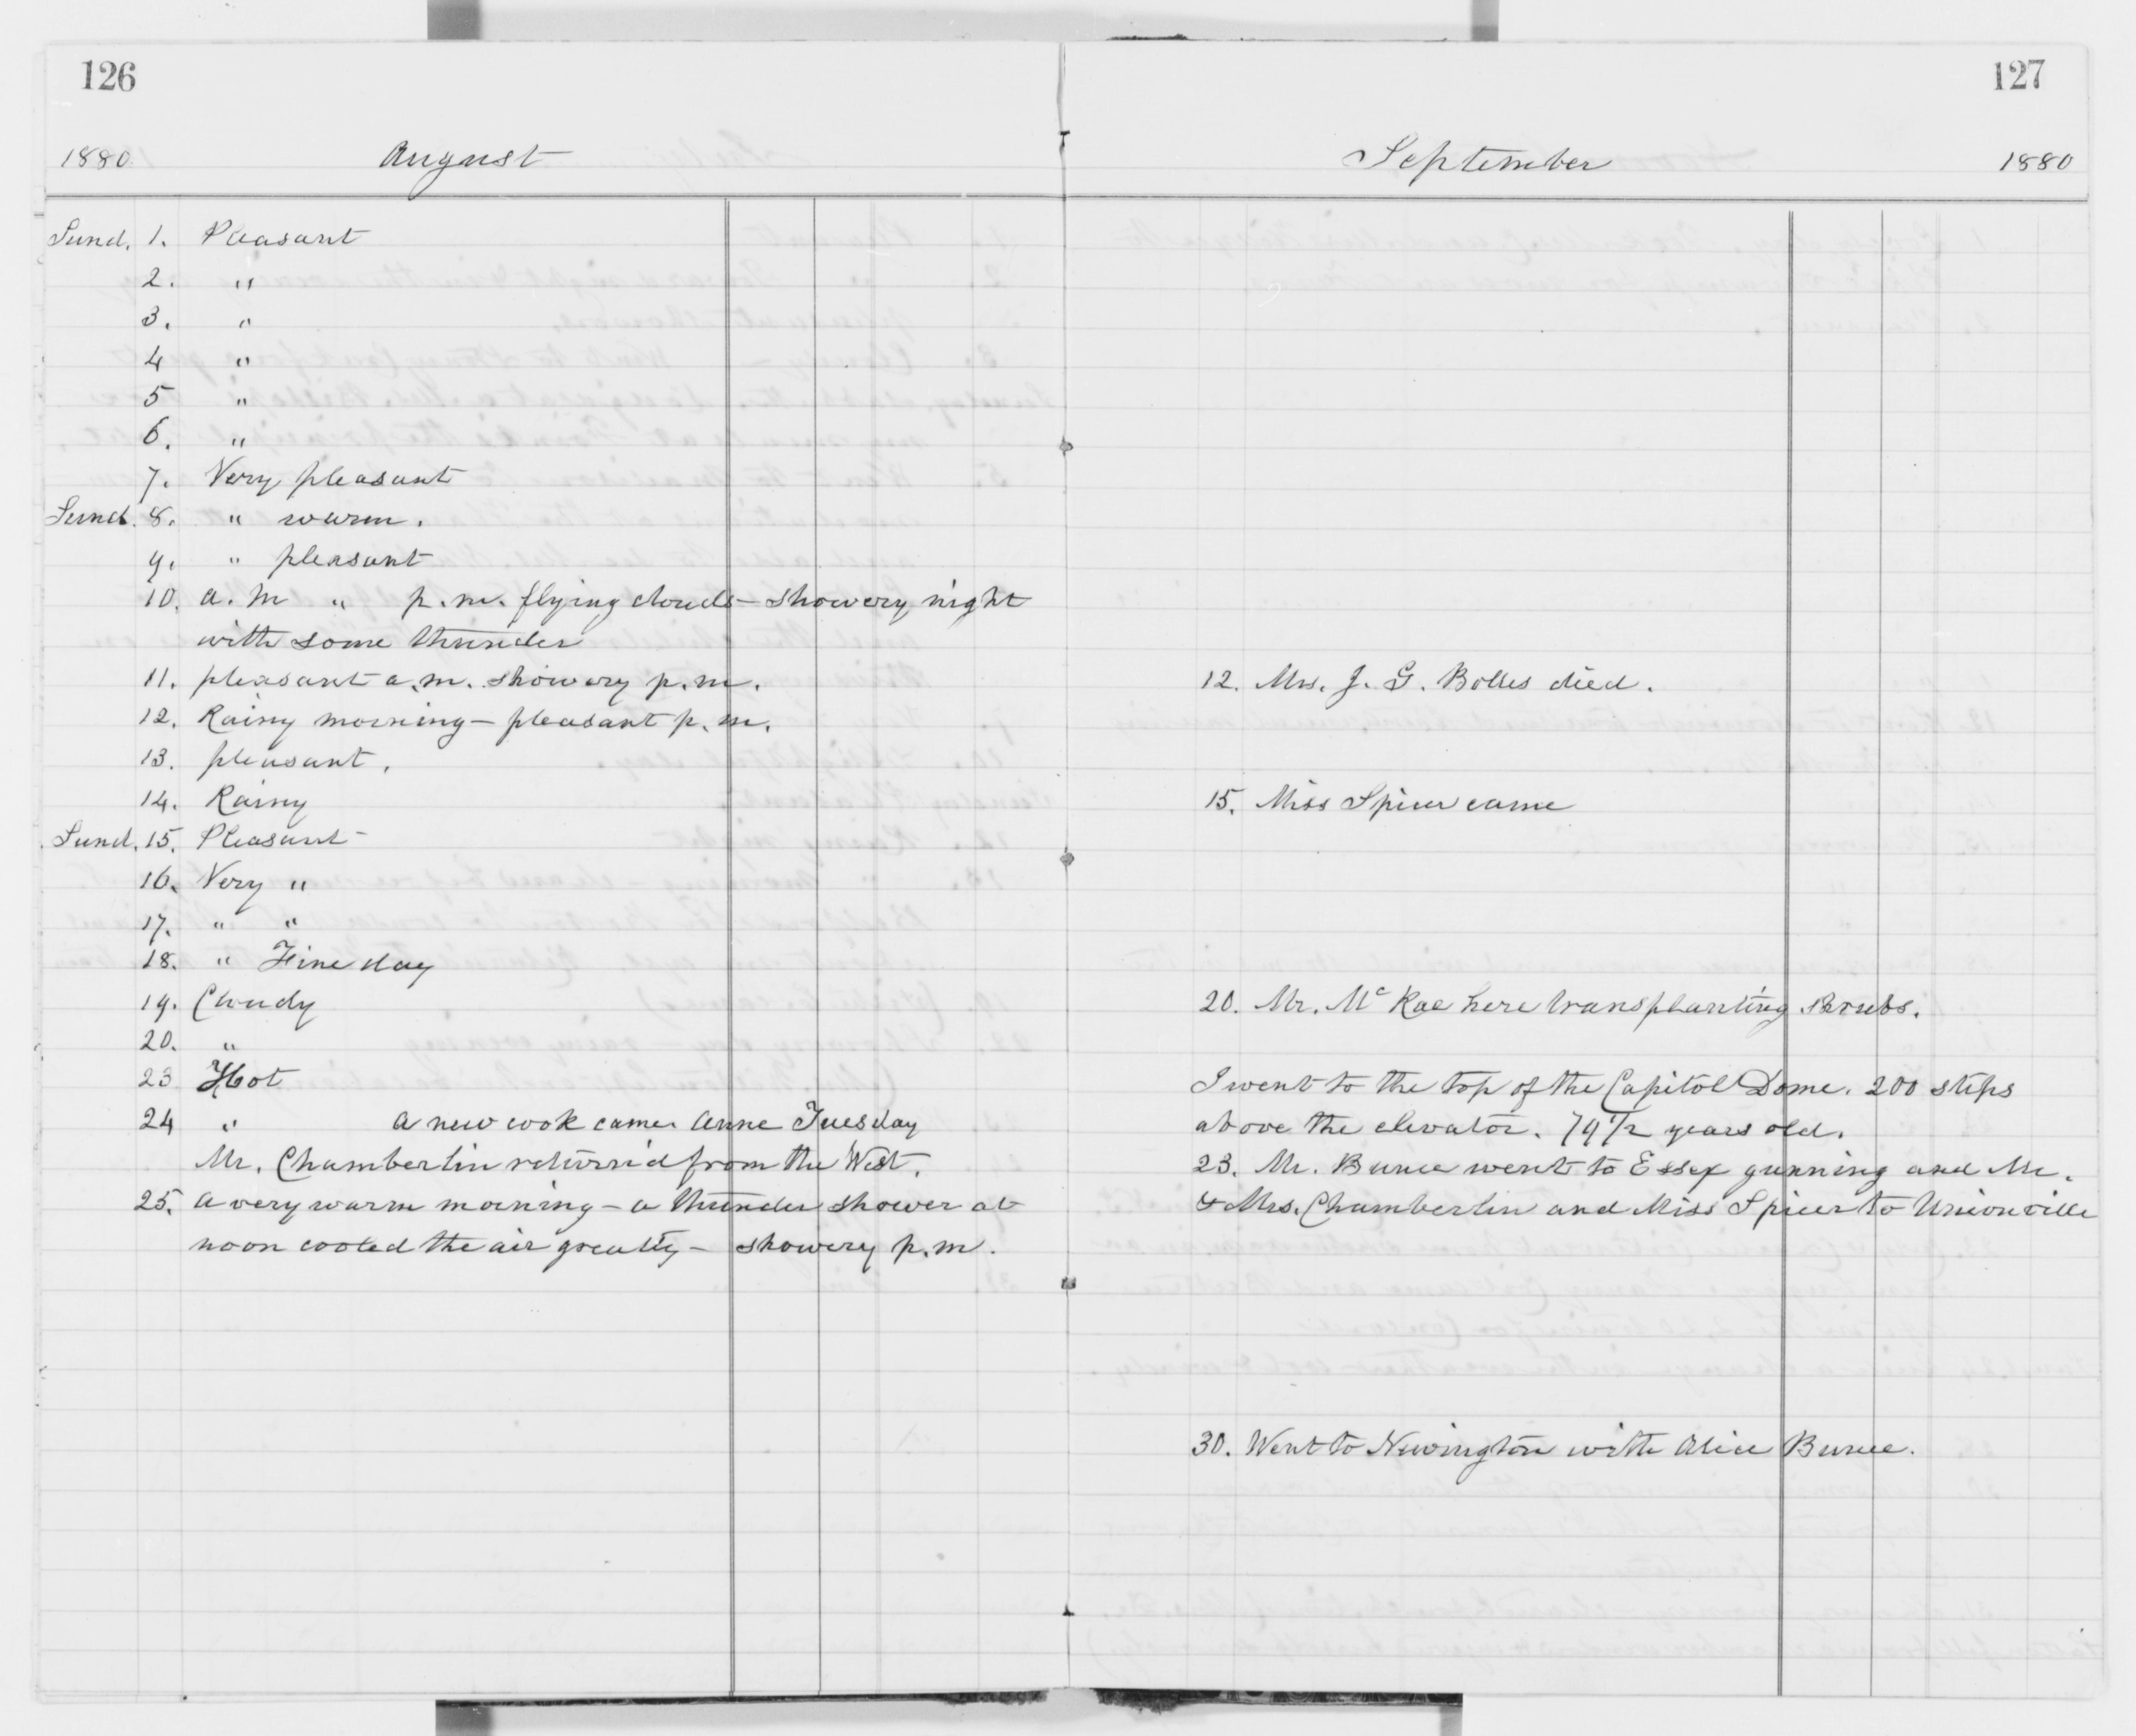 126
1880 August
Sund. 1. Pleasant
2. "
3. "
4 "
5 "
6. "
7. Very pleasant
Sund. 8. " warm.
9. " pleasant
10. a.m " p.m. flying clouds – showery night
with some thunder
11. pleasant a.m. showery p.m.
12. Rainy morning – pleasant p.m.
13. pleasant.
14. Rainy
Sund. 15. Pleasant
16. Very "
17. " "
18. " Fine day
19. Cloudy
20. "
23 Hot
24 " A new cook came. Anne Tuesday
Mr. Chamberlin returned from the West.
25. A very warm morning – a thunder shower at
noon cooled the air greatly – showery p.m.
127
September 1880
12. Mrs. J. G. Bolles died.
15. Miss Spicer came
20. Mr. McRae here transplanting shrubs.
I went to the top of the Capitol Dome. 200 steps
above the elevator. 74 1/2 years old.
23. Mr. Bunce went to Essex gunning and Mr.
& Mrs. Chamberlin and Miss Spicer to Unionville
30. Went to Newington with Alice Bunce.